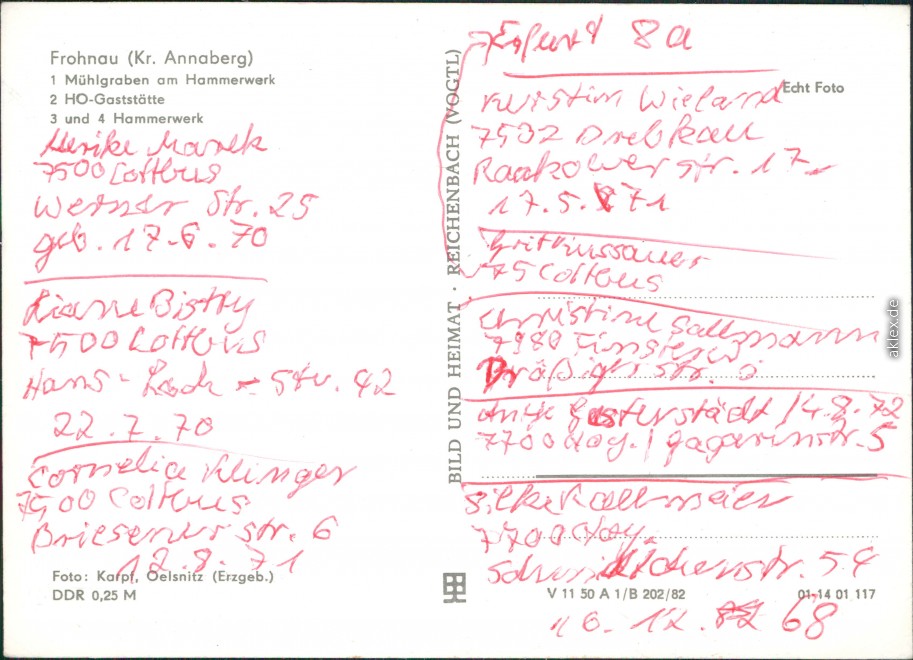 Frohnau (Kr. Annaberg)
1 Mühlgraben am Hammerwerk
2 HO-Gaststätte
3 und 4 Hammerwerk
Marek
7500 Cottbus
Weimar Str. 25
geb. 17.6.70
Liane
7500 Cottbus
Hans - Str. 42
22.7.70
Cornelia Klinger
7500 Cottbus
Briesener Str. 6
12.8.71
Foto: Karpf, Oelsnitz (Erzgeb.)
DDR 0,25 M
BILD UND HEIMAT · REICHENBACH (VOGTL)
Erfurt 8a
Echt Foto
Kristin Wieland
7532 Drebkau
Raakower Str. 17
17.5.71
Grit
75 Cottbus
Christine
7980
str.
Antje 14.8.72
7700 Hoy. / Gagarinstr. 5
Silke
7700 Hoy.
str. 54
V 11 50 A 1/B 202/82
01-14 01 117
16.12. 68
aklex.de